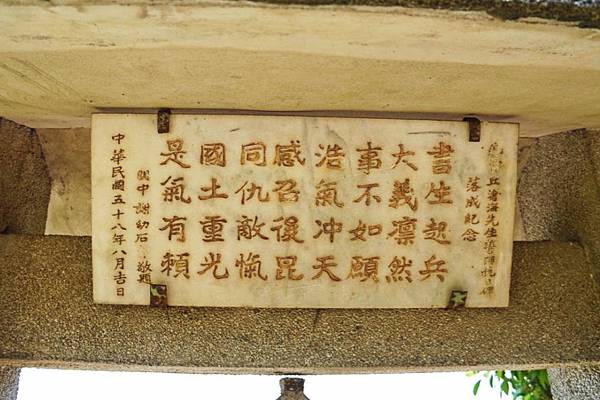 丘滄海先生
落成紀念
書生起兵
大義凛然
事不如願
浩氣冲天
感召後昆
同仇敵愾
國土重光
是氣有賴
閩中 謝幼石 敬題
中華民國五十八年八月吉日